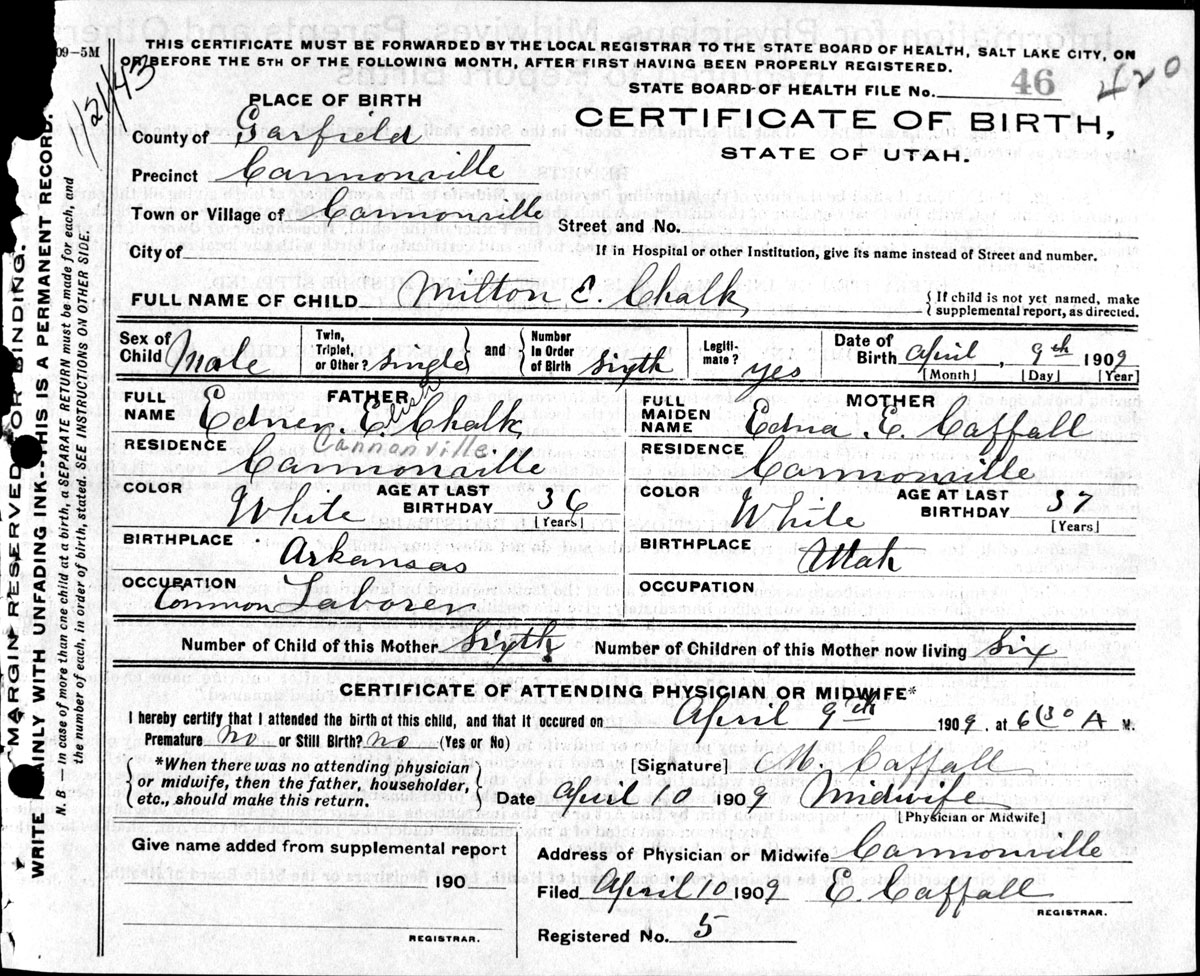 09-5M
THIS CERTIFICATE MUST BE FORWARDED BY THE LOCAL REGISTRAR TO THE STATE BOARD OF HEALTH, SALT LAKE CITY, ON
OR BEFORE THE 5TH OF THE FOLLOWING MONTH, AFTER FIRST HAVING BEEN PROPERLY REGISTERED.
STATE BOARD OF HEALTH FILE No. 46
420
1/21/43
PLACE OF BIRTH
CERTIFICATE OF BIRTH,
STATE OF UTAH.
County of Garfield
Precinct Cannonville
Town or Village of Cannonville
Street and No.
City of
If in Hospital or other Institution, give its name instead of Street and number.
FULL NAME OF CHILD Milton E. Chalk
{ If child is not yet named, make
supplemental report, as directed.
Sex of Child Male
Twin, Triplet, or Other? single } and { Number In Order of Birth sixth
Legiti-mate? yes
Date of Birth April, 9th 1909
[Month] [Day] [Year]
FATHER
FULL NAME Edner E. Chalk
RESIDENCE Cannonville
Cannonville
COLOR White
AGE AT LAST BIRTHDAY 36
[Years]
BIRTHPLACE Arkansas
OCCUPATION Common Laborer
MOTHER
FULL MAIDEN NAME Edna. E. Caffall
RESIDENCE Cannonville
COLOR White
AGE AT LAST BIRTHDAY 37
[Years]
BIRTHPLACE Utah
OCCUPATION
Number of Child of this Mother Sixth. Number of Children of this Mother now living six
CERTIFICATE OF ATTENDING PHYSICIAN OR MIDWIFE*
I hereby certify that I attended the birth of this child, and that it occured on April 9th 1909, at 6:30 A M.
Premature no or Still Birth? no (Yes or No)
*When there was no attending physician
or midwife, then the father, householder,
etc., should make this return.
[Signature] M. Caffall
Date April 10 1909 Midwife
[Physician or Midwife]
Give name added from supplemental report
190
REGISTRAR.
Address of Physician or Midwife Cannonville
Filed April 10 1909 E. Caffall
REGISTRAR.
Registered No. 5
MARGIN RESERVED FOR BINDING.
WRITE PLAINLY WITH UNFADING INK--THIS IS A PERMANENT RECORD.
N. B — In case of more than one child at a birth, a SEPARATE RETURN must be made for each, and
the number of each, in order of birth, stated. SEE INSTRUCTIONS ON OTHER SIDE.